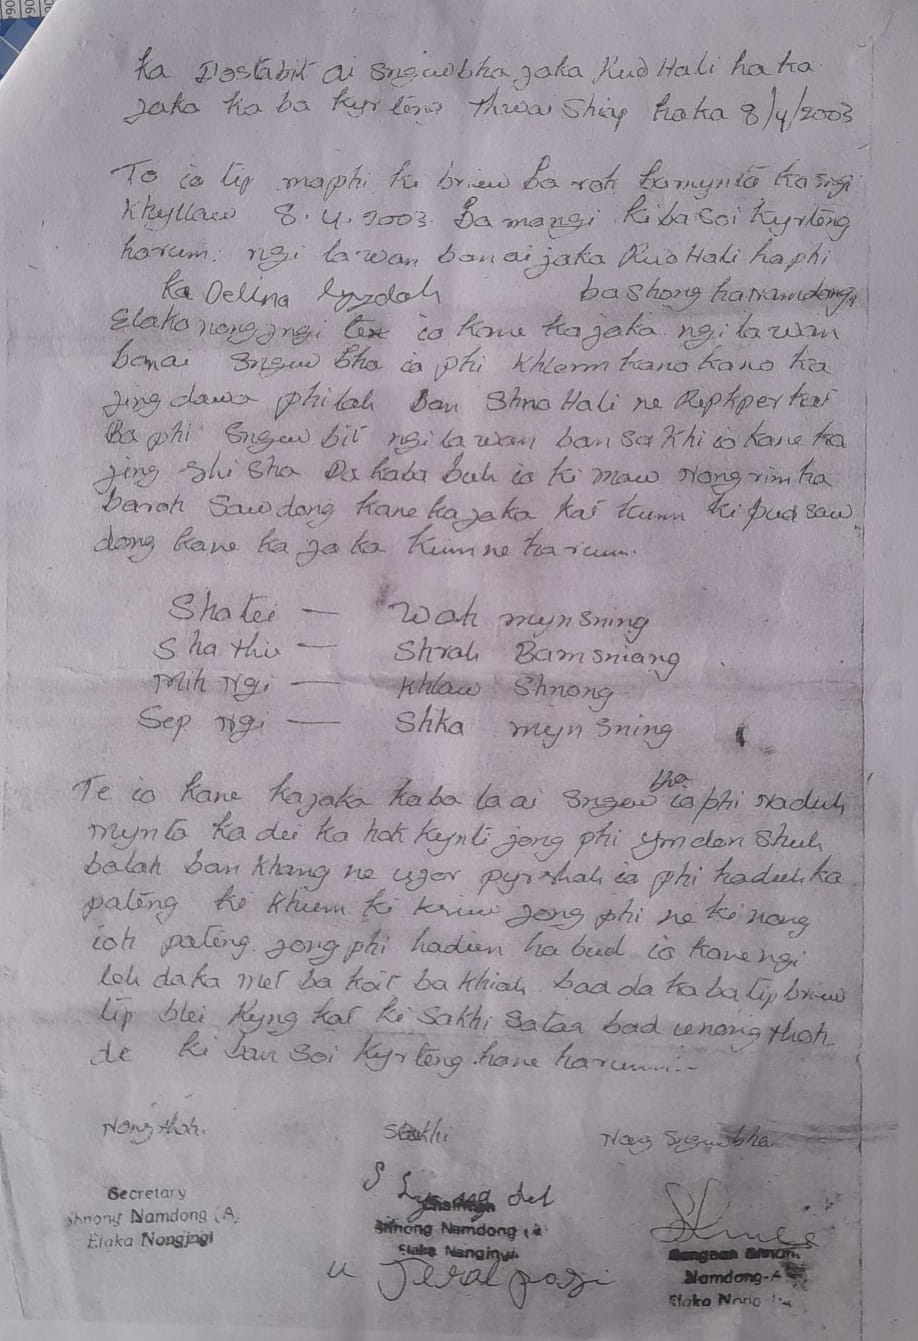 Ka Dostabit ai sngewbha jaka Kud Hali ha ka
jaka ka ba kyrteng Thwai Shiap ha ka 8/4/2003
To ia tip maphi ki briew ba roh ba mynta ka sngi
Khyllaw 8.4.2003. Ba mangi ki ba soi kyrteng
harum: ngi la wan ban ai jaka Kud Hali ha phi
ka Delina ba shong ha Namdong,
Elaka nongjngi ia kane ka jaka ngi la wan
ban ai sngew bha ia phi khlem kano kano ka
jing dawa phi lah Ban Shna Hali ne Repkper kat
Ba phi sngew bit ngi la wan ban sakhi ia kane ka
jing shi sha Da kaba buh ia ki maw Nongrim ha
baroh sawdong kane ka jaka kat kum ki pud saw
dong kane ka jaka kumne harum.
Shatei — Wah mynsning
Sha thi — Shrah Bamsniang
Mih Ngi — Khlaw Shnong
Sep Ngi — Shka mynsning
Te ia kane ka jaka kaba la ai sngew bha ia phi Naduh
mynta ka dei ka hok kynti jong phi ym don shuh
ba lah ban khang ne ujor pyrshah ia phi haduh ka
pateng ki khum ki ksiew jong phi ne ki nong
ioh pateng jong phi hadien ha bud ia kane ngi
leh da ka met ba kot ba khiah bad da ka ba tip briew
tip blei kyng kat ki sakhi bad u nong thoh
de ki ban soi kyrteng hane harum.....
Nong thoh. Sakhi Nong Sngewbha
Secretary
Shnong Namdong (A)
Elaka Nongjngi
Shnong Namdong
Elaka Nongjngi
Namdong-A
Elaka